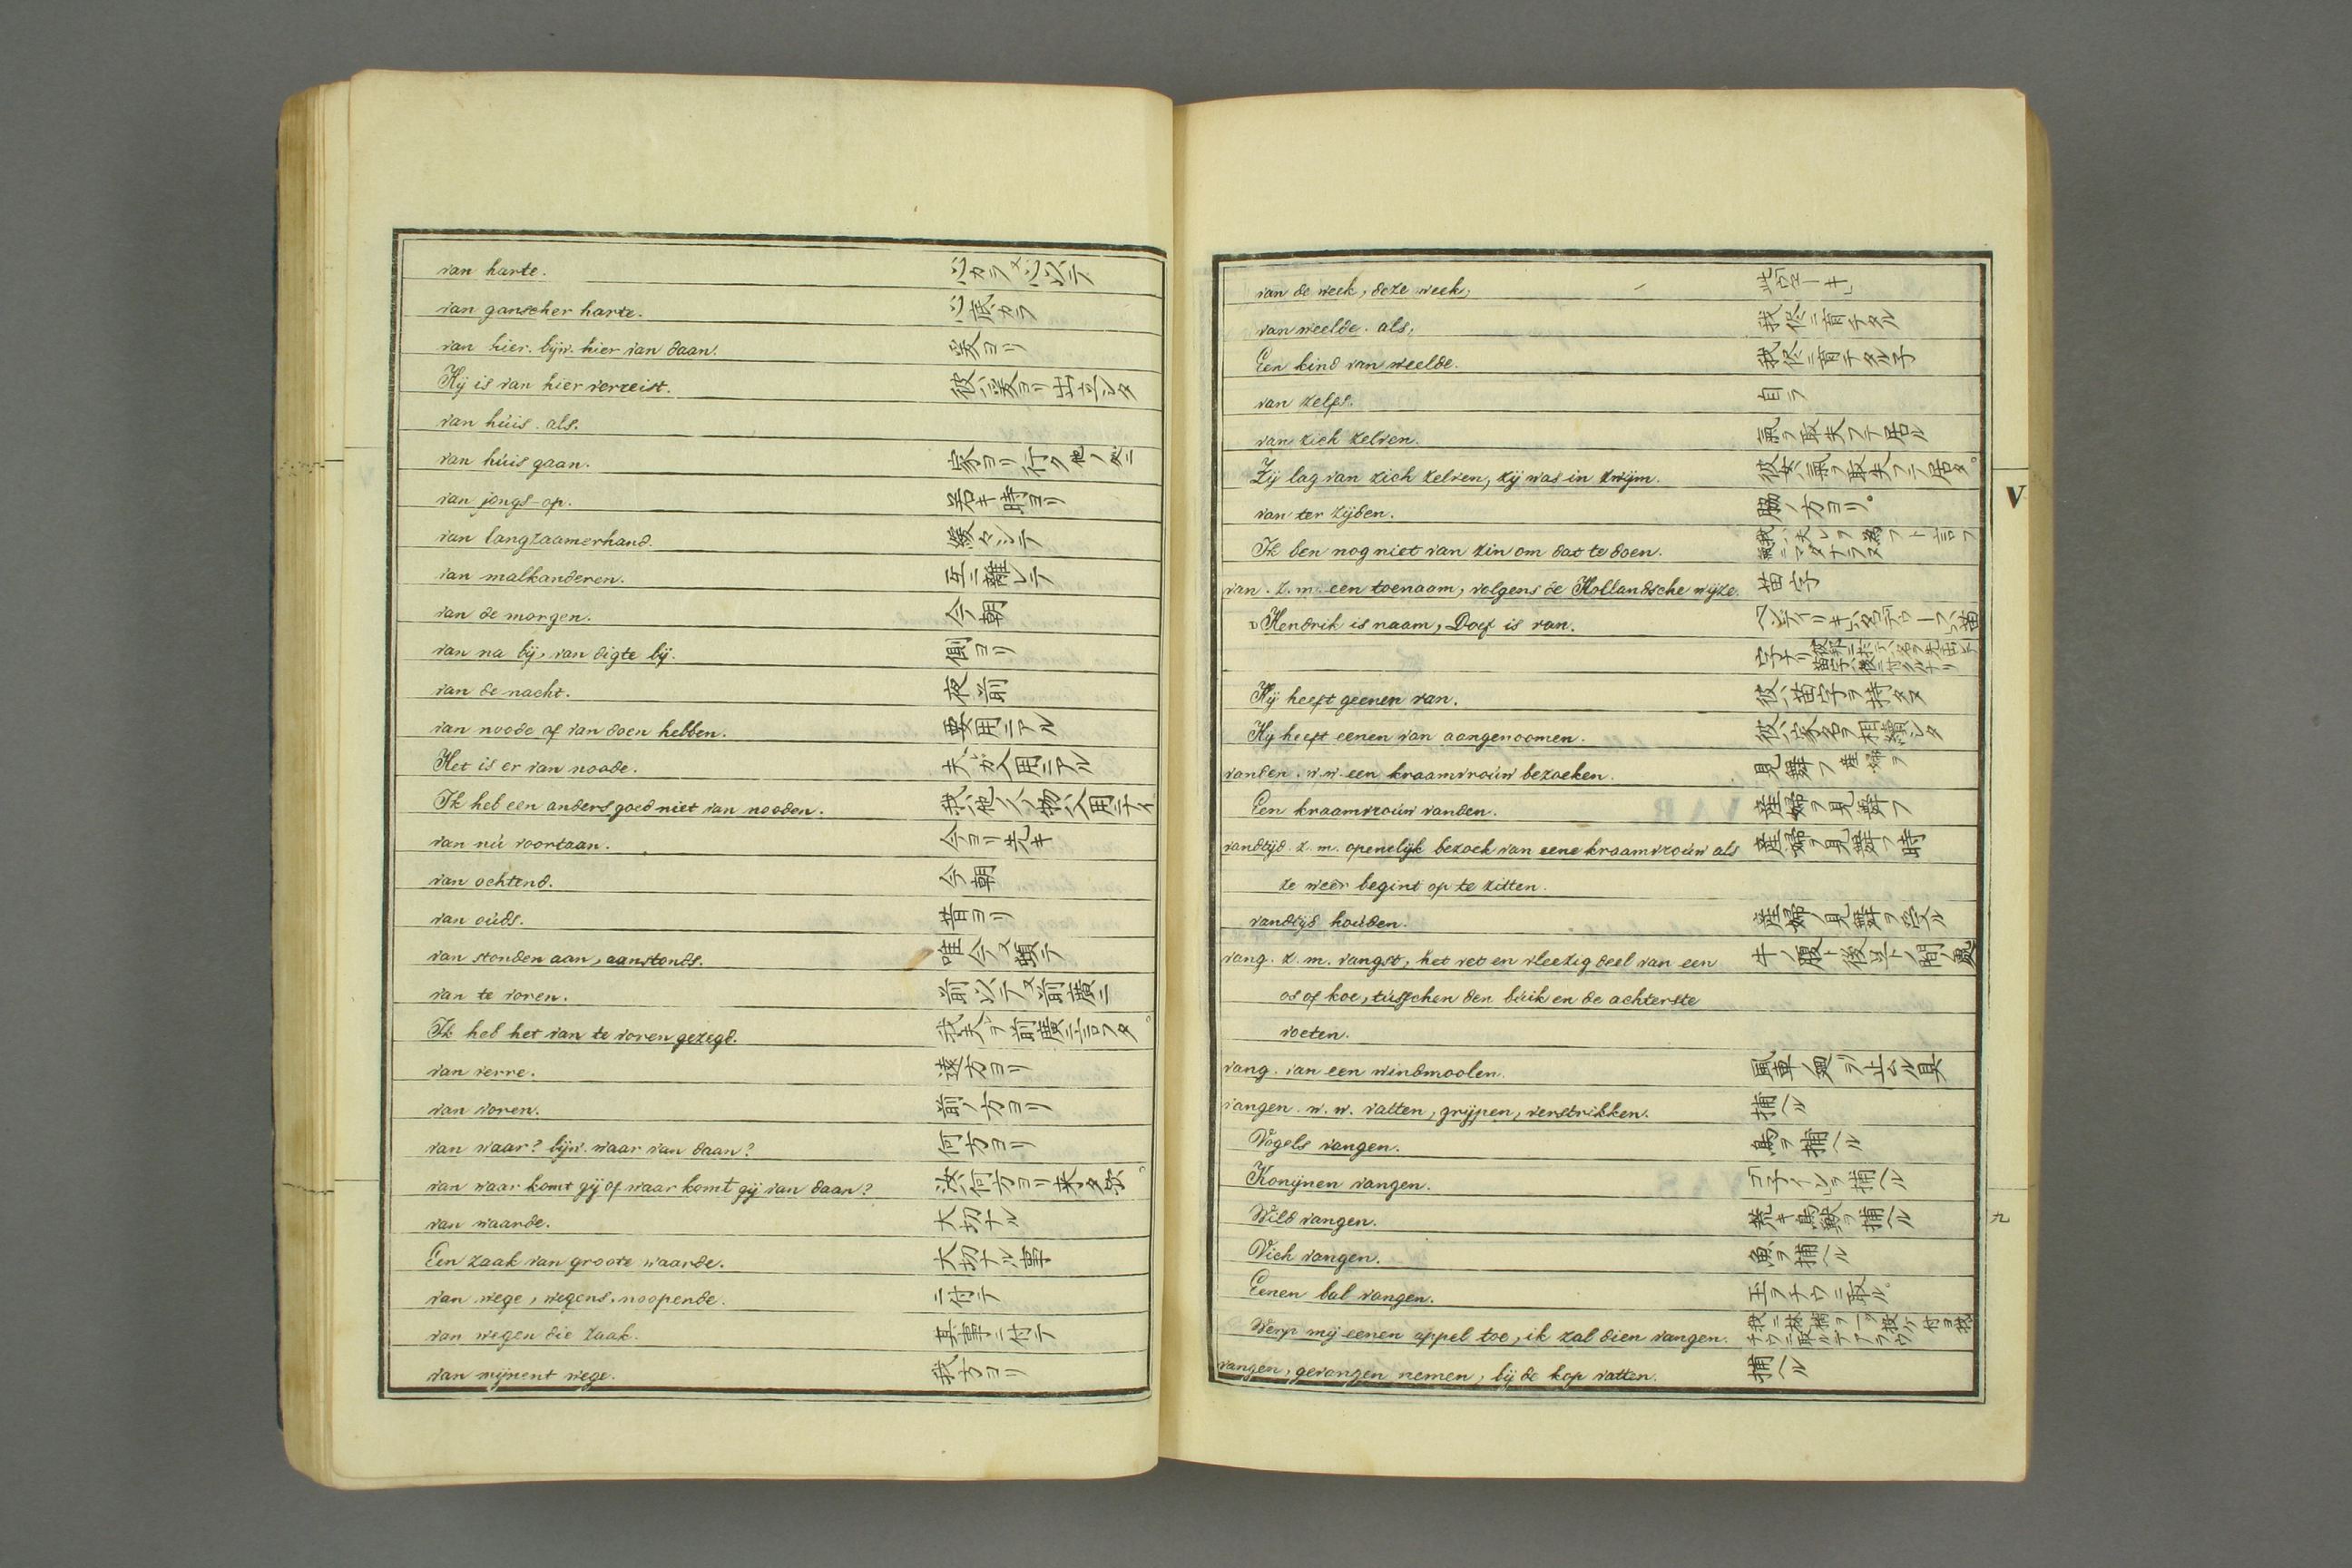 van harte. 心カラ又心以テ
van ganscher harte. 心底カラ
van hier. bijw. hier van daan. 爰ヨリ
Hij is van hier verreist. 彼ハ爰ヨリ出立シタ
van húis. als.
van húis gaan. 家ヨリ行ク
van jongs-op. 若キ時ヨリ
van langzaamerhand. 緩々シテ
van malkanderen. 互ニ離レテ
van de morgen. 今朝
van na bij, van digte bij. 側ヨリ
van de nacht. 夜前
van noode of van doen hebben. 要用ニアル
Het is er van noode. 夫レガ入用ニアル
Ik heb een anders goed niet van nooden. 我ハ他人ノ物ハ入用ニナイ
van nú voortaan. 今ヨリ先キ
van ochtend. 今朝
van oúds. 昔ヨリ
van stonden aan, aanstonds. 唯今又頓テ
van te voren. 前以テ又前廣ニ
Ik heb het van te voren gezegd. 我夫レヲ前廣ニ言フタ。
van verre. 遠方ヨリ
van voren. 前ノ方ヨリ
van waar? bijw. waar van daan? 何方ヨリ
van waar komt gij of waar komt gij van daan? 汝ハ何方ヨリ来タ
van waarde. 大切ナル
Een zaak van groote waarde. 大切ナル事
van wege, wegens, noopende. ニ付テ
van wegen die zaak. 其事ニ付テ
van mijnent wege. 我方ヨリ
van de week, deze week,
van weelde. als, 我侭ニ育チタル
Een kind van weelde. 我侭ニ育チタル子
van zelfs. 自ラ
van zich zelven. 氣ヲ取失フテ居ル
Zij lag van zich zelven, zij was in zwijm. 彼女ハ氣ヲ取失フテ居タ。
van ter zijden. 脇ノ方ヨリ。
Ik ben nog niet van zin om dat te doen. 我ハ夫レヲ為フト言フ
van. z. m. een toenaam, volgens de Hollandsche wijze. 苗字
Hendrik is naam, Doef is van. 苗
字ナリ
Hij heeft geenen van. 彼ハ苗字ヲ持タヌ
Hij heeft eenen van aangenoomen. 彼ハ家名ヲ相續シタ
vanden. w.w. een kraamvroúw bezoeken. 見舞フ 産婦ヲ
Een kraamvroúw vanden. 産婦ヲ見舞フ
vandtijd. z. m. openelijk bezoek van eene kraamvroúw als 産婦ヲ見舞フ時
ze wéêr begint op te zitten.
vandtijd hoúden. 産婦ノ見舞ヲ受ル
vang. z. m. vangst, het vet en vleezig deel van een 牛ノ腹ト後足トノ間ノ處
os of koe, tússchen den búik en de achterste
voeten.
vang. van een windmoolen. 風車ノ廻リヲ止ムル具
vangen. w. w. vatten, grijpen, verstrikken. 捕ヘル
Vogels vangen. 鳥ヲ捕ヘル
Konijnen vangen. 捕ヘル
Wild vangen. 荒キ鳥獣ヲ捕ヘル
Visch vangen. 魚ヲ捕ヘル
Eenen bal vangen. 玉ヲチウニ取ル。
Werp mij eenen appel toe, ik zal dien vangen.
vangen, gevangen nemen, bij de kop vatten. 捕ヘル
V
九